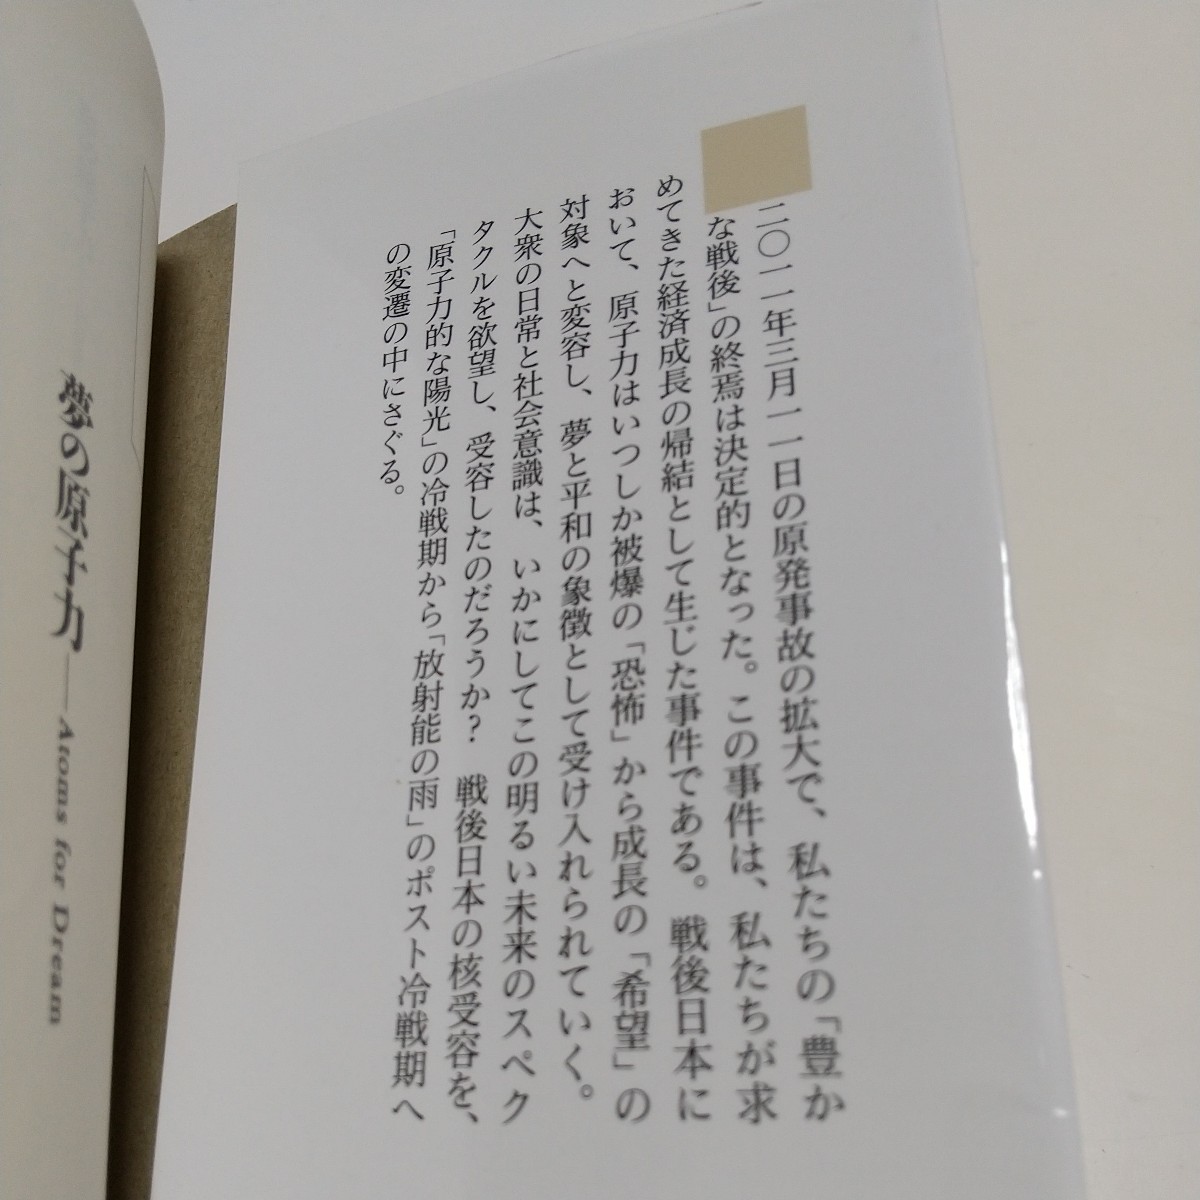 二〇一一年三月一一日の原発事故の拡大で、私たちの「豊か
な戦後」の終焉は決定的となった。この事件は、私たちが求
めてきた経済成長の帰結として生じた事件である。戦後日本に
おいて、原子力はいつしか被爆の「恐怖」から成長の「希望」の
対象へと変容し、夢と平和の象徴として受け入れられていく。
大衆の日常と社会意識は、いかにしてこの明るい未来のスペク
タクルを欲望し、受容したのだろうか？　戦後日本の核受容を、
「原子力的な陽光」の冷戦期から「放射能の雨」のポスト冷戦期へ
の変遷の中にさぐる。
夢の原子力——Atoms for Dream